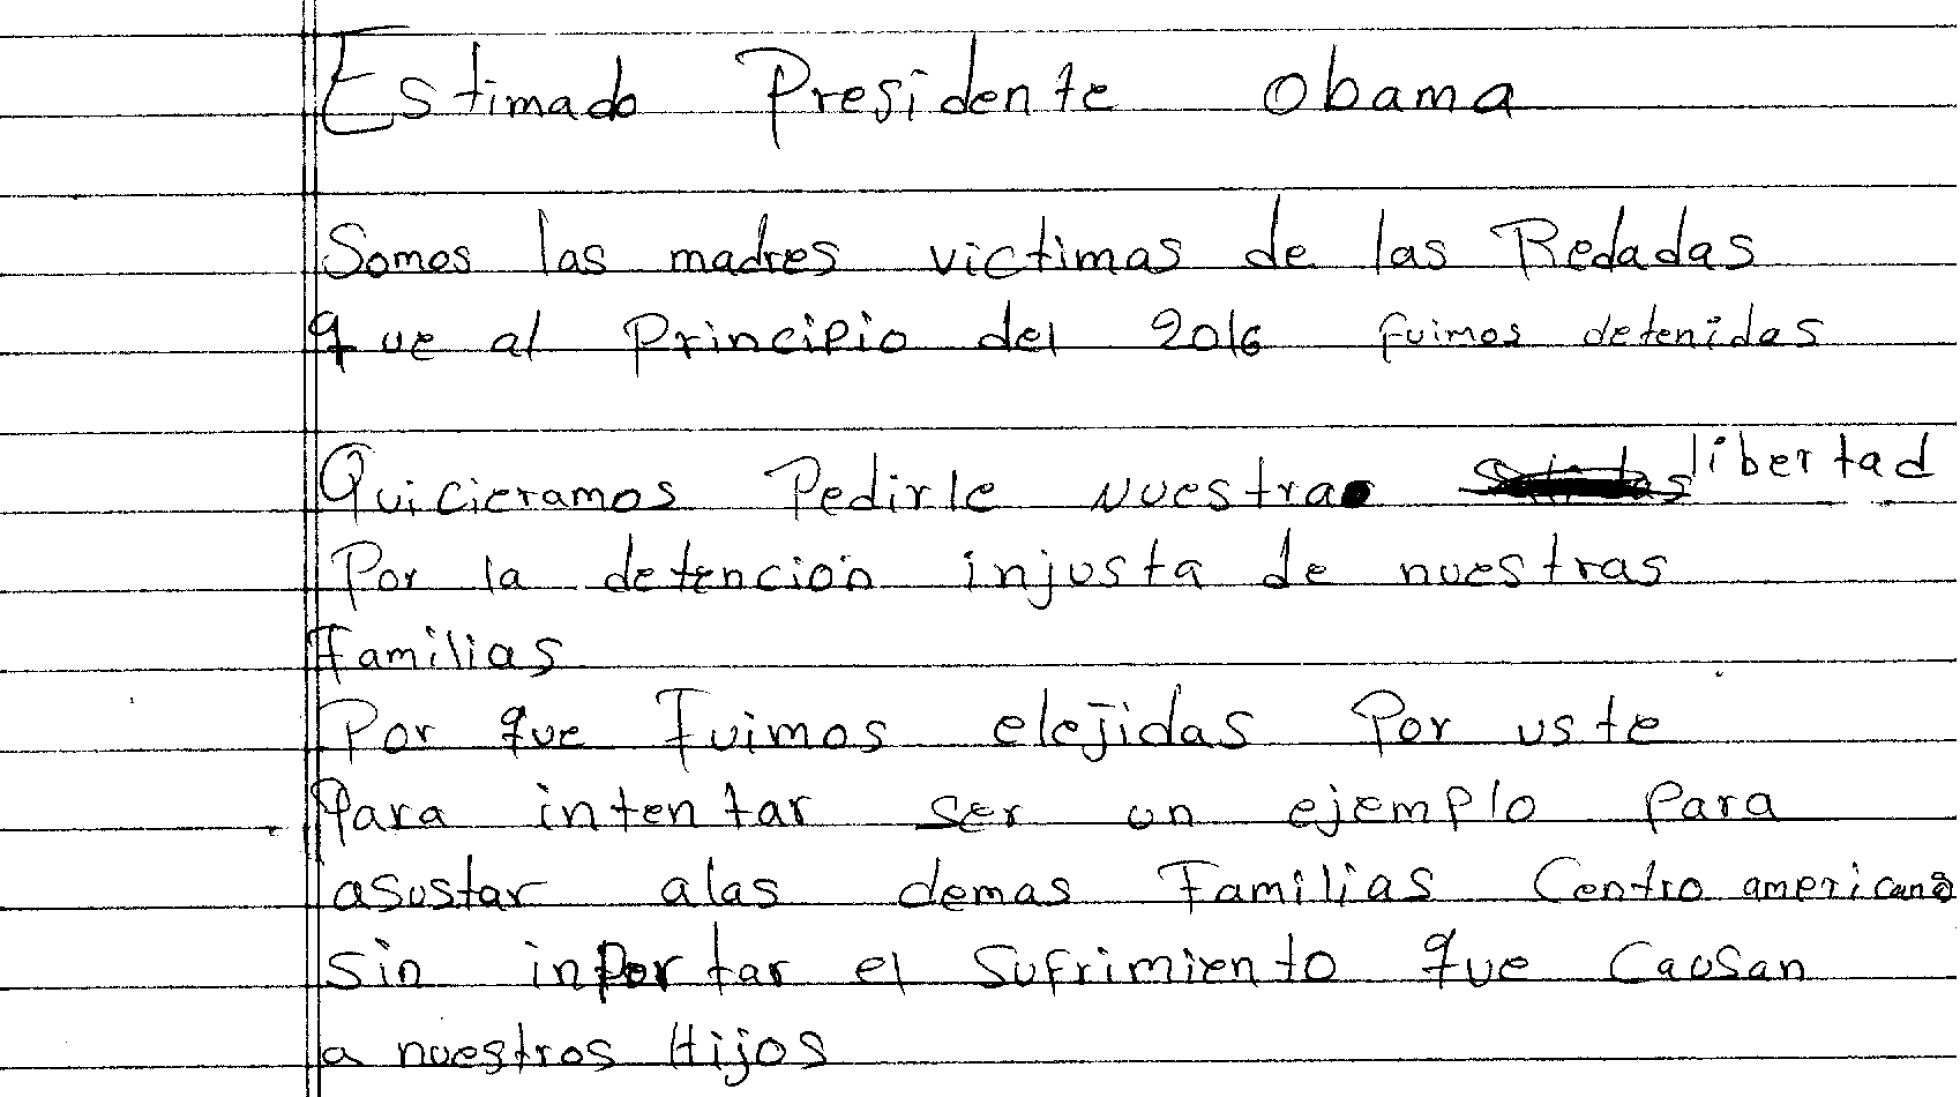 Estimado Presidente Obama
Somos las madres victimas de las Redadas
que al Principio del 2016 fuimos detenidas
Quicieramos Pedirle Nuestra libertad
Por la detención injusta de nuestras
Familias
Por que Fuimos elejidas Por uste
Para intentar ser un ejemplo Para
asustar alas demas Familias Centro americana
sin inportar el Sufrimiento que Causan
a nuestros Hijos